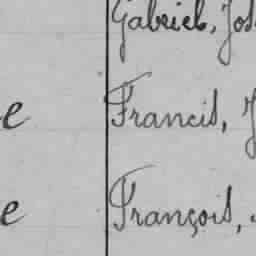 Gabriel, Jos
e Francis, J
e François,